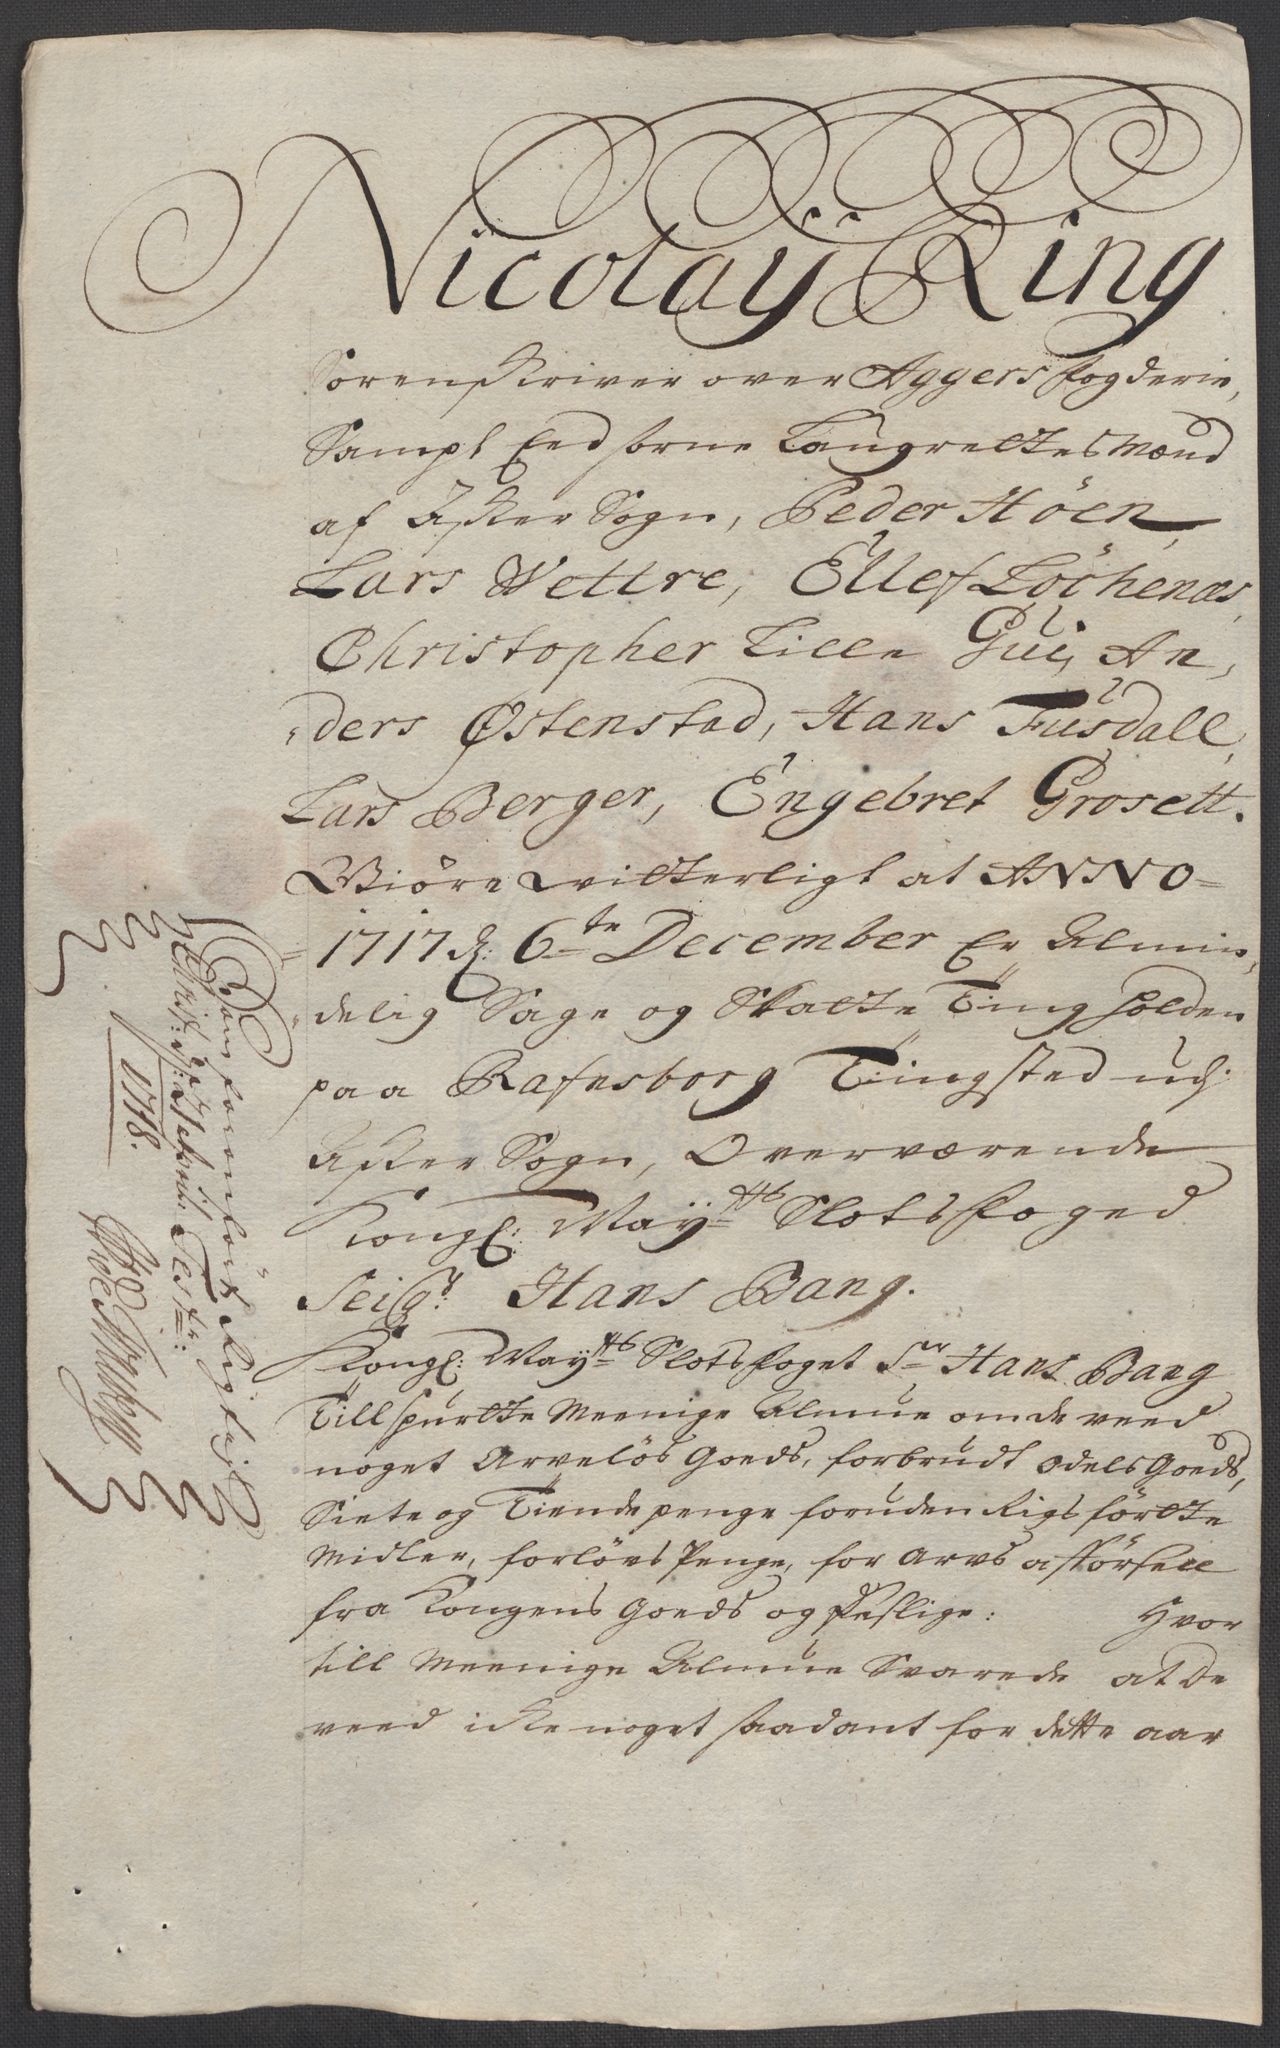 Nicolaÿ Ring
Sorenskriver over Aggers fogderie,
Sampt Eedsorne Laugrettes Mænd
af Asker Sogn, Peder Höen,
Lars Wettre, Ellef Löchenæs,
Christopher Lille Gui, An-
ders Østenstad, Hans Fusdall,
Lars Berger, Engebret Grosett.
Giöre witterligt at ANNO
1717 d: 6te December Er Almin-
delig Sage og Skatte Ting holden
paa Rafnsborg Tingsted udj
Asker Sogn, Overværende
Kongl: Mayts Slotsfoged
Seigr: Hans Bang.
Kongl: Mayts Slotsfoget Sr Hans Bang
Tillspurtte Meenige Almue om de veed
noget Arvelös Goeds, forbrudt Odels Goeds,
Siete og Tiende penge foruden Rigsförtte
Midler, forlövs Penge, for Arvs afförsell
fra Kongens Goeds og desslige: Hvor
till Meenige Almue Svarede at De
veed icke noget saadant for dette aar
Test:
1718.